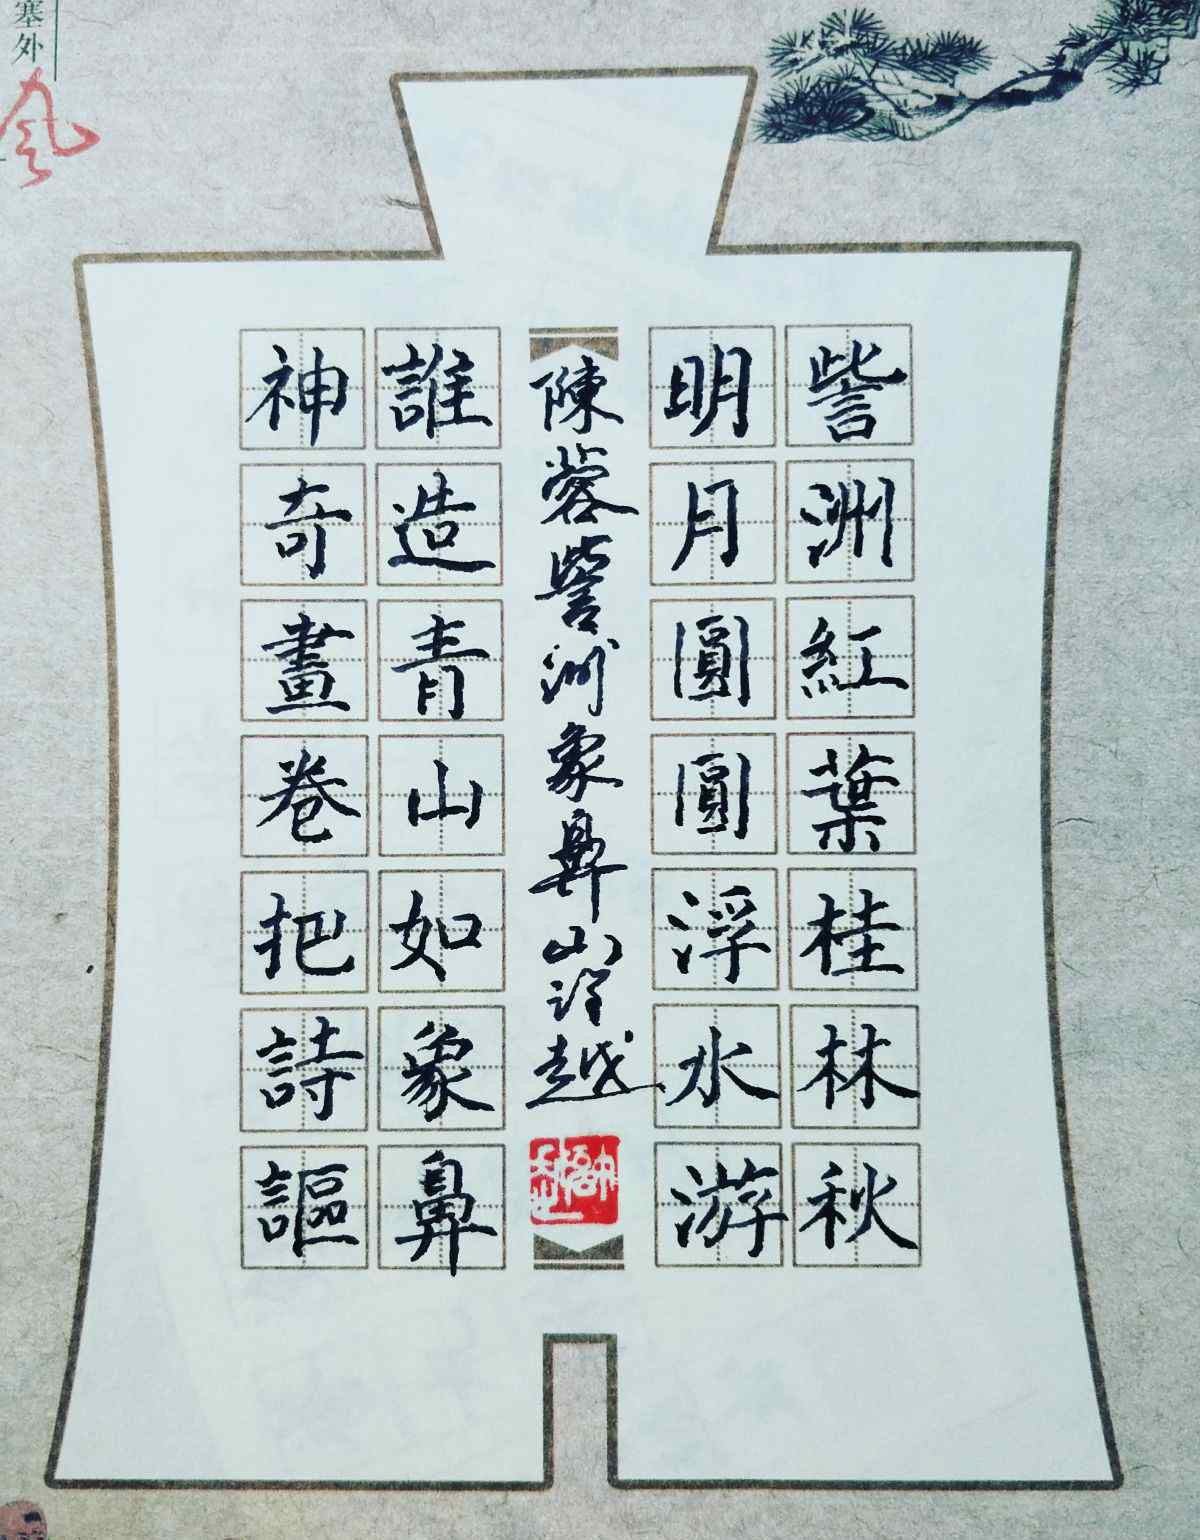 訾洲紅葉桂林秋
明月圓圓浮水游
陳蓉訾洲象鼻山詩
誰造青山如象鼻
神奇畫卷把詩謳
塞外
風